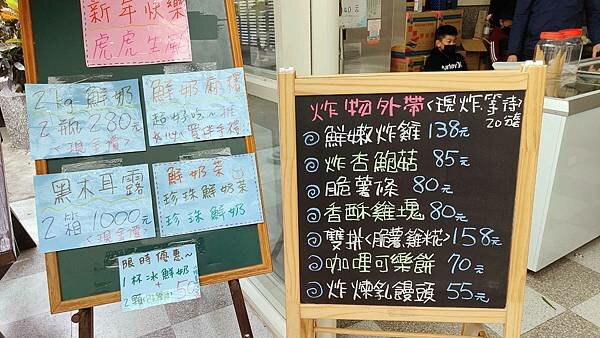 新年快樂
虎虎生風
2kg鮮奶
2瓶280元
<現金價>
鮮奶麻糬
超好吃~推
黑木耳露
2箱1000元
<現金價>
鮮奶茶
珍珠鮮奶茶
珍珠鮮奶
限時優惠~
1杯冰鮮奶
+
2顆
50元
炸物外帶<現炸等待
20分鐘
◎鮮嫩炸雞138元
◎炸杏鮑菇85元
◎脆薯條80元
◎香酥雞塊80元
◎雙拼<脆薯雞柳>158元
◎咖哩可樂餅70元
◎炸煉乳饅頭55元